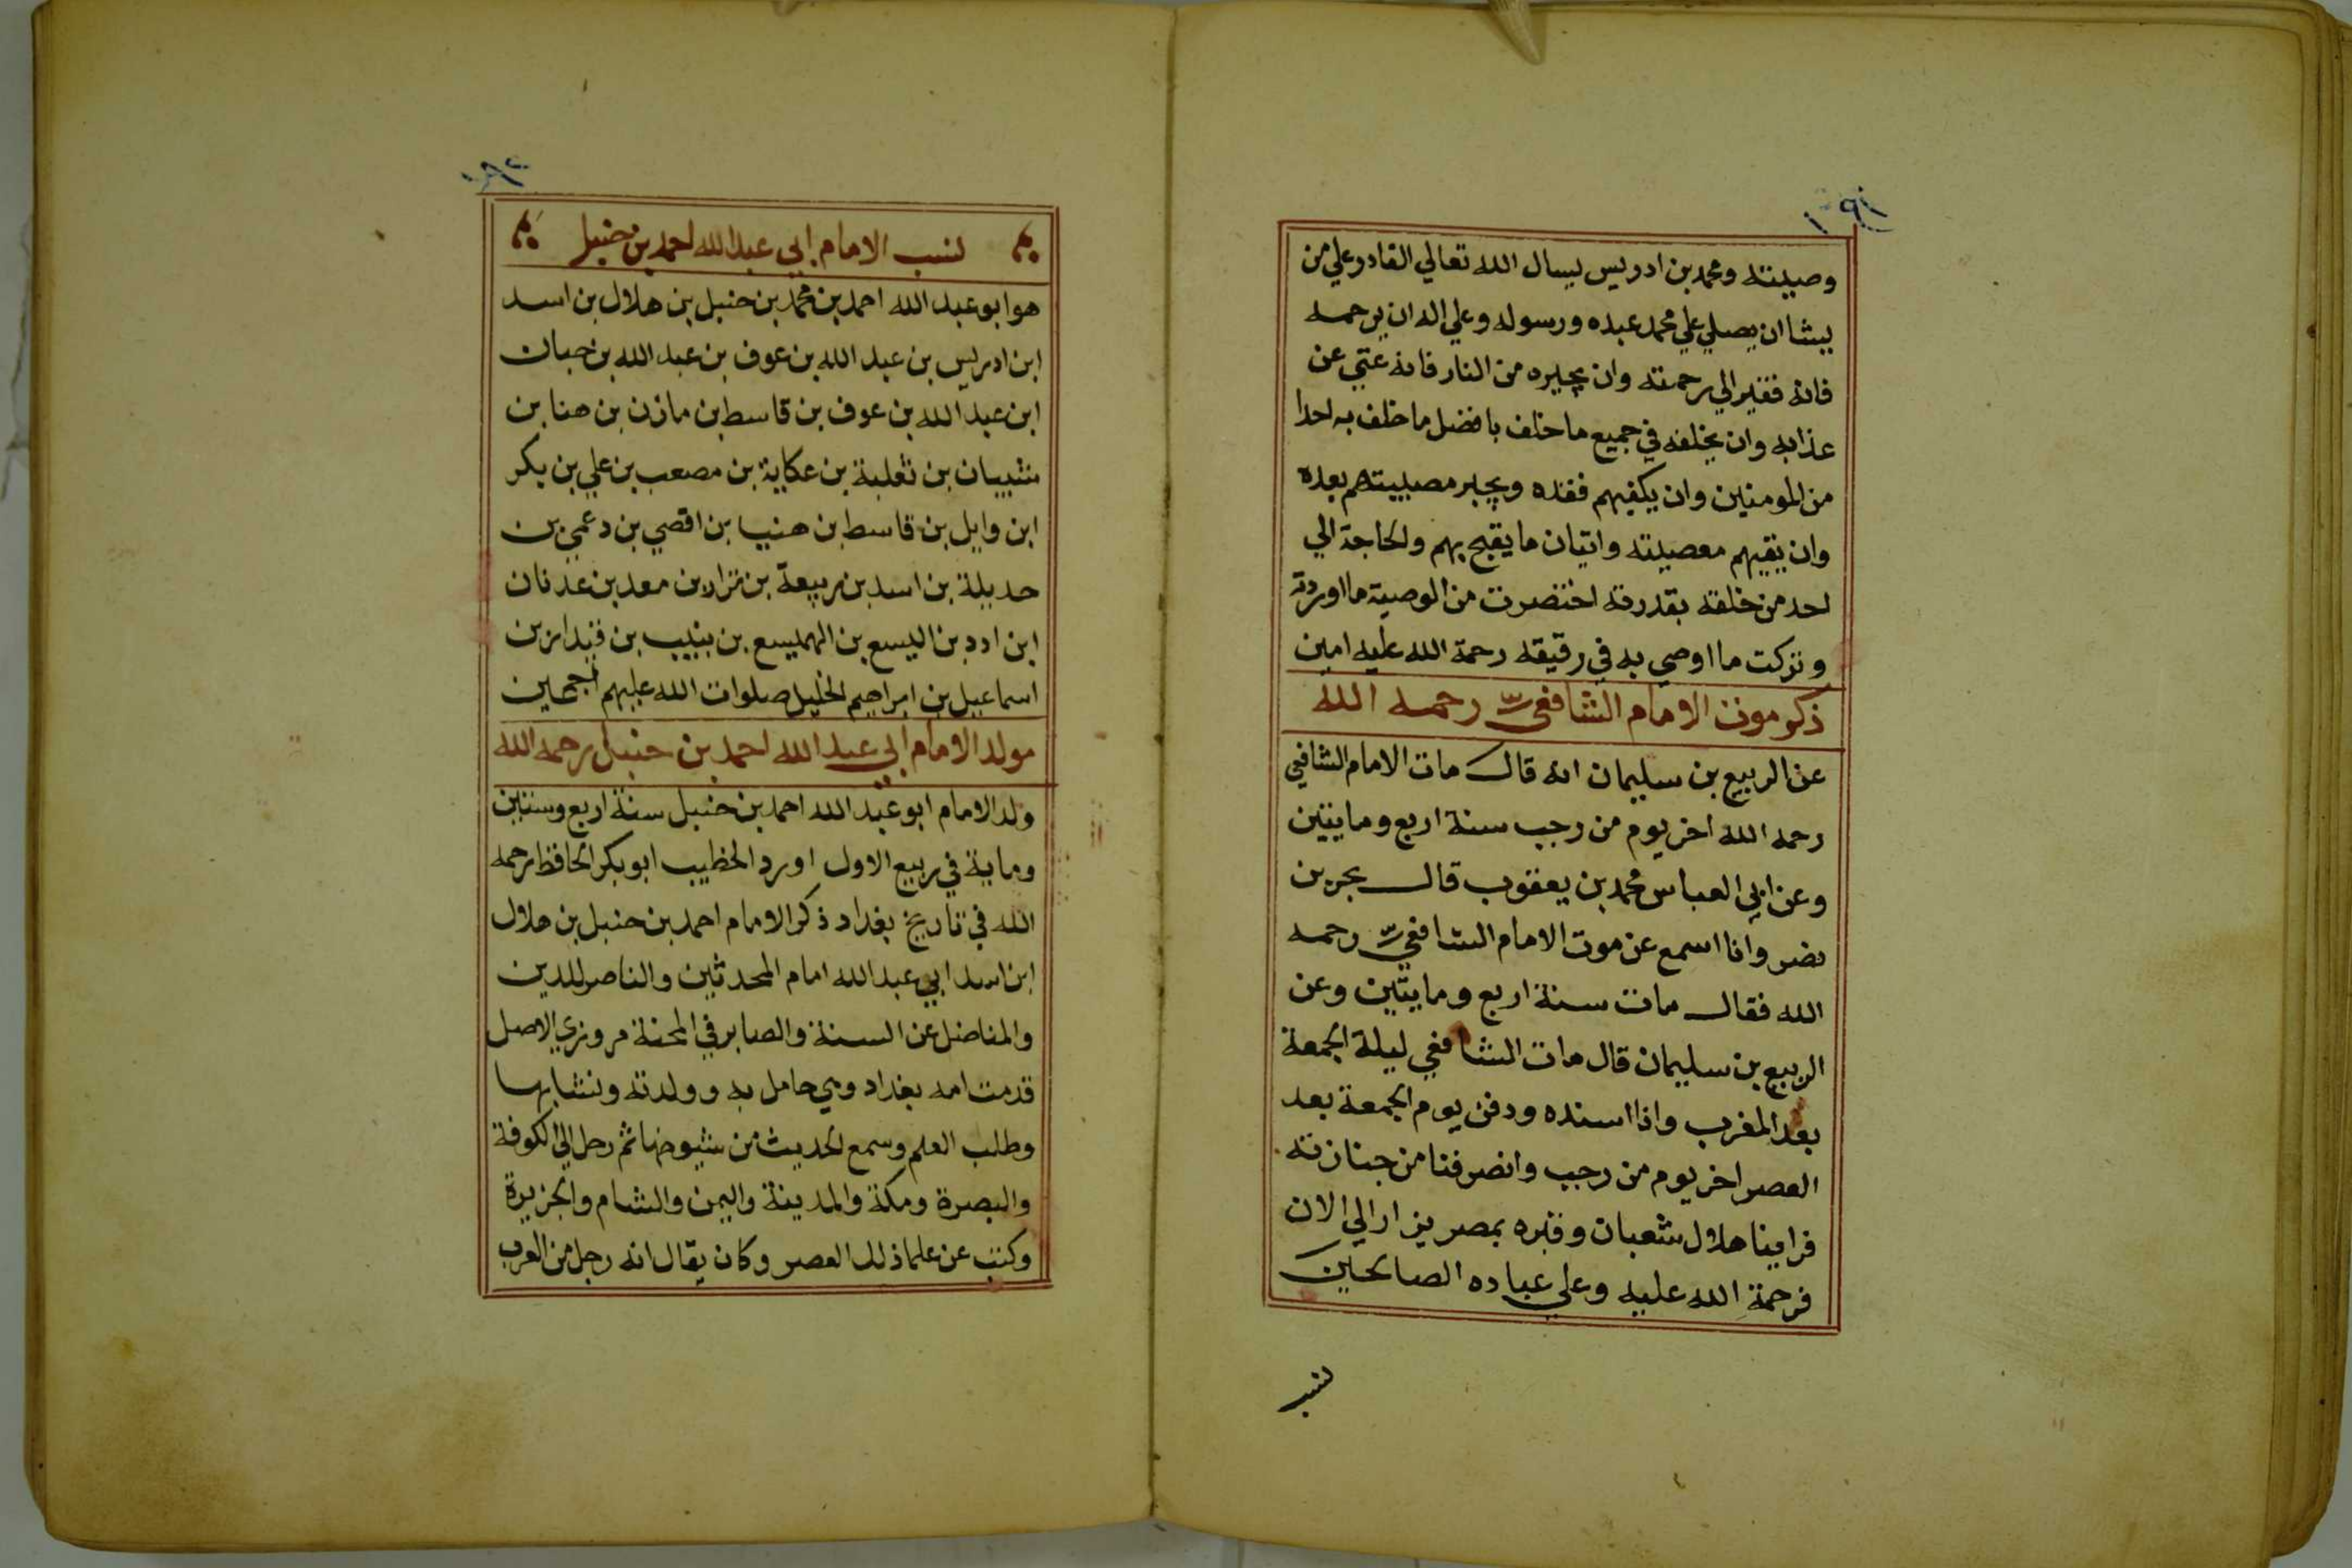 وصيته ومحمد بن ادريس يسال الله تعالي القادر علي من
يشا ان يصلي علي محمد عبده ورسوله وعلي اله ان يرحمه
فانه فقير الي رحمته وان يجيره من النار فانه غني عن
عذابه وان يخلفه في جميع ما خلف بافضل ما خلف به احدا
من المومنين وان يكفيهم فقده ويجبر مصيبتهم بعده
وان يقيهم معصيته واتيان ما يقبح بهم والحاجة الي
احد من خلقه بقدرته اختصرت من الوصية ما اوردته
وتركت ما اوصي به في رقيقه رحمة الله عليه امين
ذكر موت الامام الشافعي رحمه الله
عن الربيع بن سليمان انه قال مات الامام الشافعي
رحمه الله اخر يوم من رجب سنة اربع ومايتين
وعن ابي العباس محمد بن يعقوب قال بحر بن
نصر وانا اسمع عن موت الامام الشافعي رحمه
الله فقال مات سنة اربع ومايتين وعن
الربيع بن سليمان قال مات الشافعي ليلة الجمعة
بعد المغرب واذا اسنده ودفن يوم الجمعة بعد
العصر اخر يوم من رجب وانصرفنا من جنازته
فراينا هلال شعبان وقبره بمصر يزار الي الان
فرحمة الله عليه وعلي عباده الصالحين
نسب
١٩١
١٩٢
نسب الامام ابي عبد الله احمد بن حنبل
هو ابو عبد الله احمد بن محمد بن حنبل بن هلال بن اسد
ابن ادريس بن عبد الله بن عوف بن عبد الله بن حبان
ابن عبد الله بن عوف بن قاسط بن مازن بن هنا بن
شيبان بن ثعلبة بن عكاية بن مصعب بن علي بن بكر
ابن وايل بن قاسط بن هنيا بن اقصي بن دعمي بن
حديلة بن اسد بن ربيعة بن نزار بن معد بن عدنان
ابن ادد بن اليسع بن الهميسع بن بنيب بن قيدار بن
اسماعيل بن ابراهيم الخليل صلوات الله عليهم اجمعين
مولد الامام ابي عبد الله احمد بن حنبل رحمه الله
ولد الامام ابو عبد الله احمد بن حنبل سنة اربع وستين
وماية في ربيع الاول اورد الخطيب ابو بكر الحافظ رحمه
الله في تاريخ بغداد ذكر الامام احمد بن حنبل بن هلال
ابن اسد ابي عبد الله امام المحدثين والناصر للدين
والمناضل عن السنة والصابر في المحنة مروزي الاصل
قدمت امه بغداد وهي حامل به وولدته ونشا بها
وطلب العلم وسمع الحديث من شيوخها ثم رحل الي الكوفة
والبصرة ومكة والمدينة واليمن والشام والجزيرة
وكتب عن علما ذلك العصر وكان يقال انه رجل من العرب